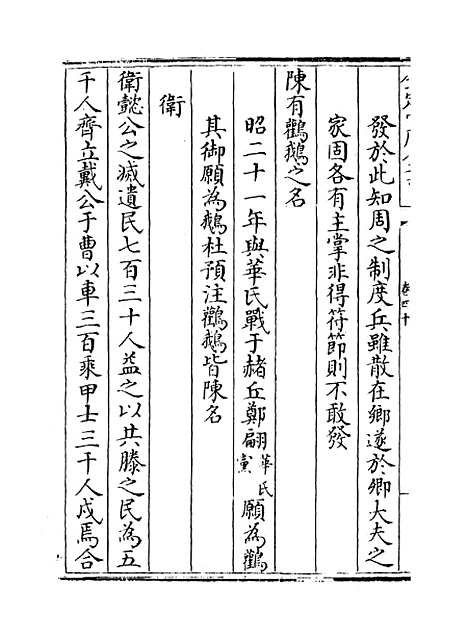 卷四十
發於此知周之制度兵雖散在鄉遂於卿大夫之
家固各有主掌非得符節則不敢發
陳有鸛鵝之名
昭二十一年與華氏戰于赭丘鄭翩華氏黨願為鸛
其御願為鵝杜預注鸛鵝皆陳名
衛
衛懿公之滅遺民七百三十人益之以共滕之民為五
千人齊立戴公于曹以車三百乘甲士三千人戍焉合